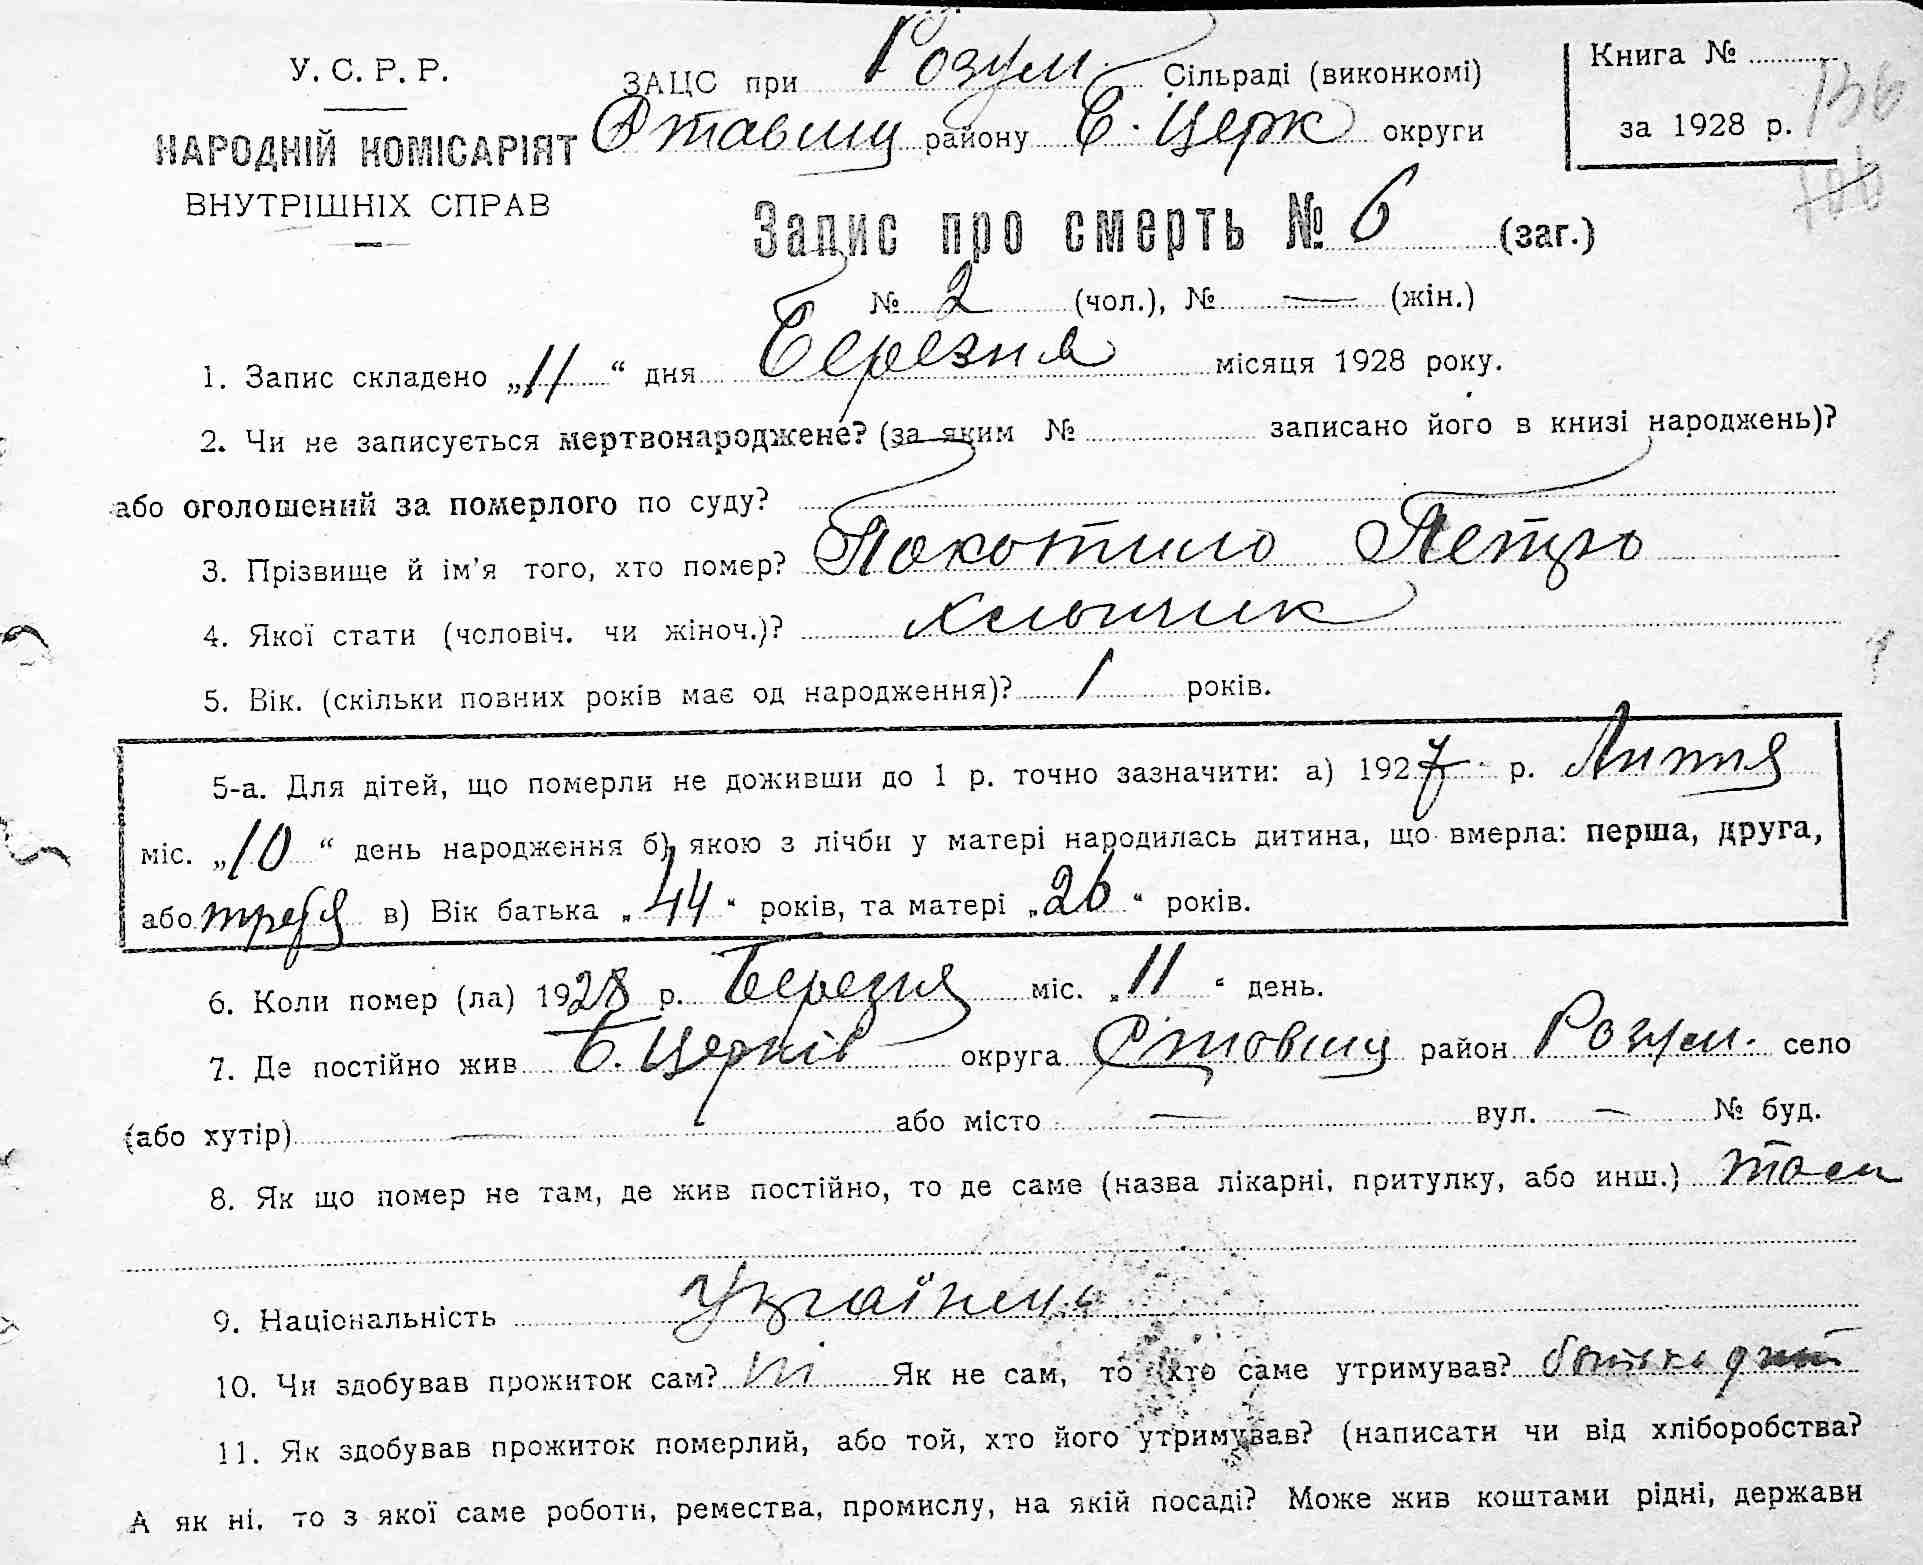 У. С. Р. Р.
НАРОДНІЙ КОМІСАРІЯТ
ВНУТРІШНІХ СПРАВ
ЗАЦС при Розум. Сільраді (виконкомі)
Ставищ району Б. Церк округи
Книга № 
за 1928 р.
136
Запис про смерть № 6 (заг.)
№ 2 (чол.), № — (жін.)
1. Запис складено „11“ дня Березня місяця 1928 року.
2. Чи не записується мертвонароджене? (за яким № записано його в книзі народжень)?
або оголошений за померлого по суду?
3. Прізвище й ім’я того, хто помер? Покотило Петро
4. Якої стати (чоловіч. чи жіноч.)? хлопчик
5. Вік. (скільки повних років має од народження)? 1 років.
5-а. Для дітей, що померли не доживши до 1 р. точно зазначити: а) 1927 р. Липня
міс. „10“ день народження б) якою з лічби у матері народилась дитина, що вмерла: перша, друга,
або третя в) Вік батька „44“ років, та матері „26“ років.
6. Коли помер (ла) 1928 р. Березня міс. „11“ день.
7. Де постійно жив Б. Церків округа Ставищ район Розум. село
(або хутір) — або місто — вул. — № буд.
8. Як що помер не там, де жив постійно, то де саме (назва лікарні, притулку, або инш.) там
9. Національність Українець
10. Чи здобував прожиток сам? ні Як не сам, то хто саме утримував? батько
11. Як здобував прожиток померлий, або той, хто його утримував? (написати чи від хліборобства?
А як ні, то з якої саме роботи, ремества, промислу, на якій посаді? Може жив коштами рідні, держави